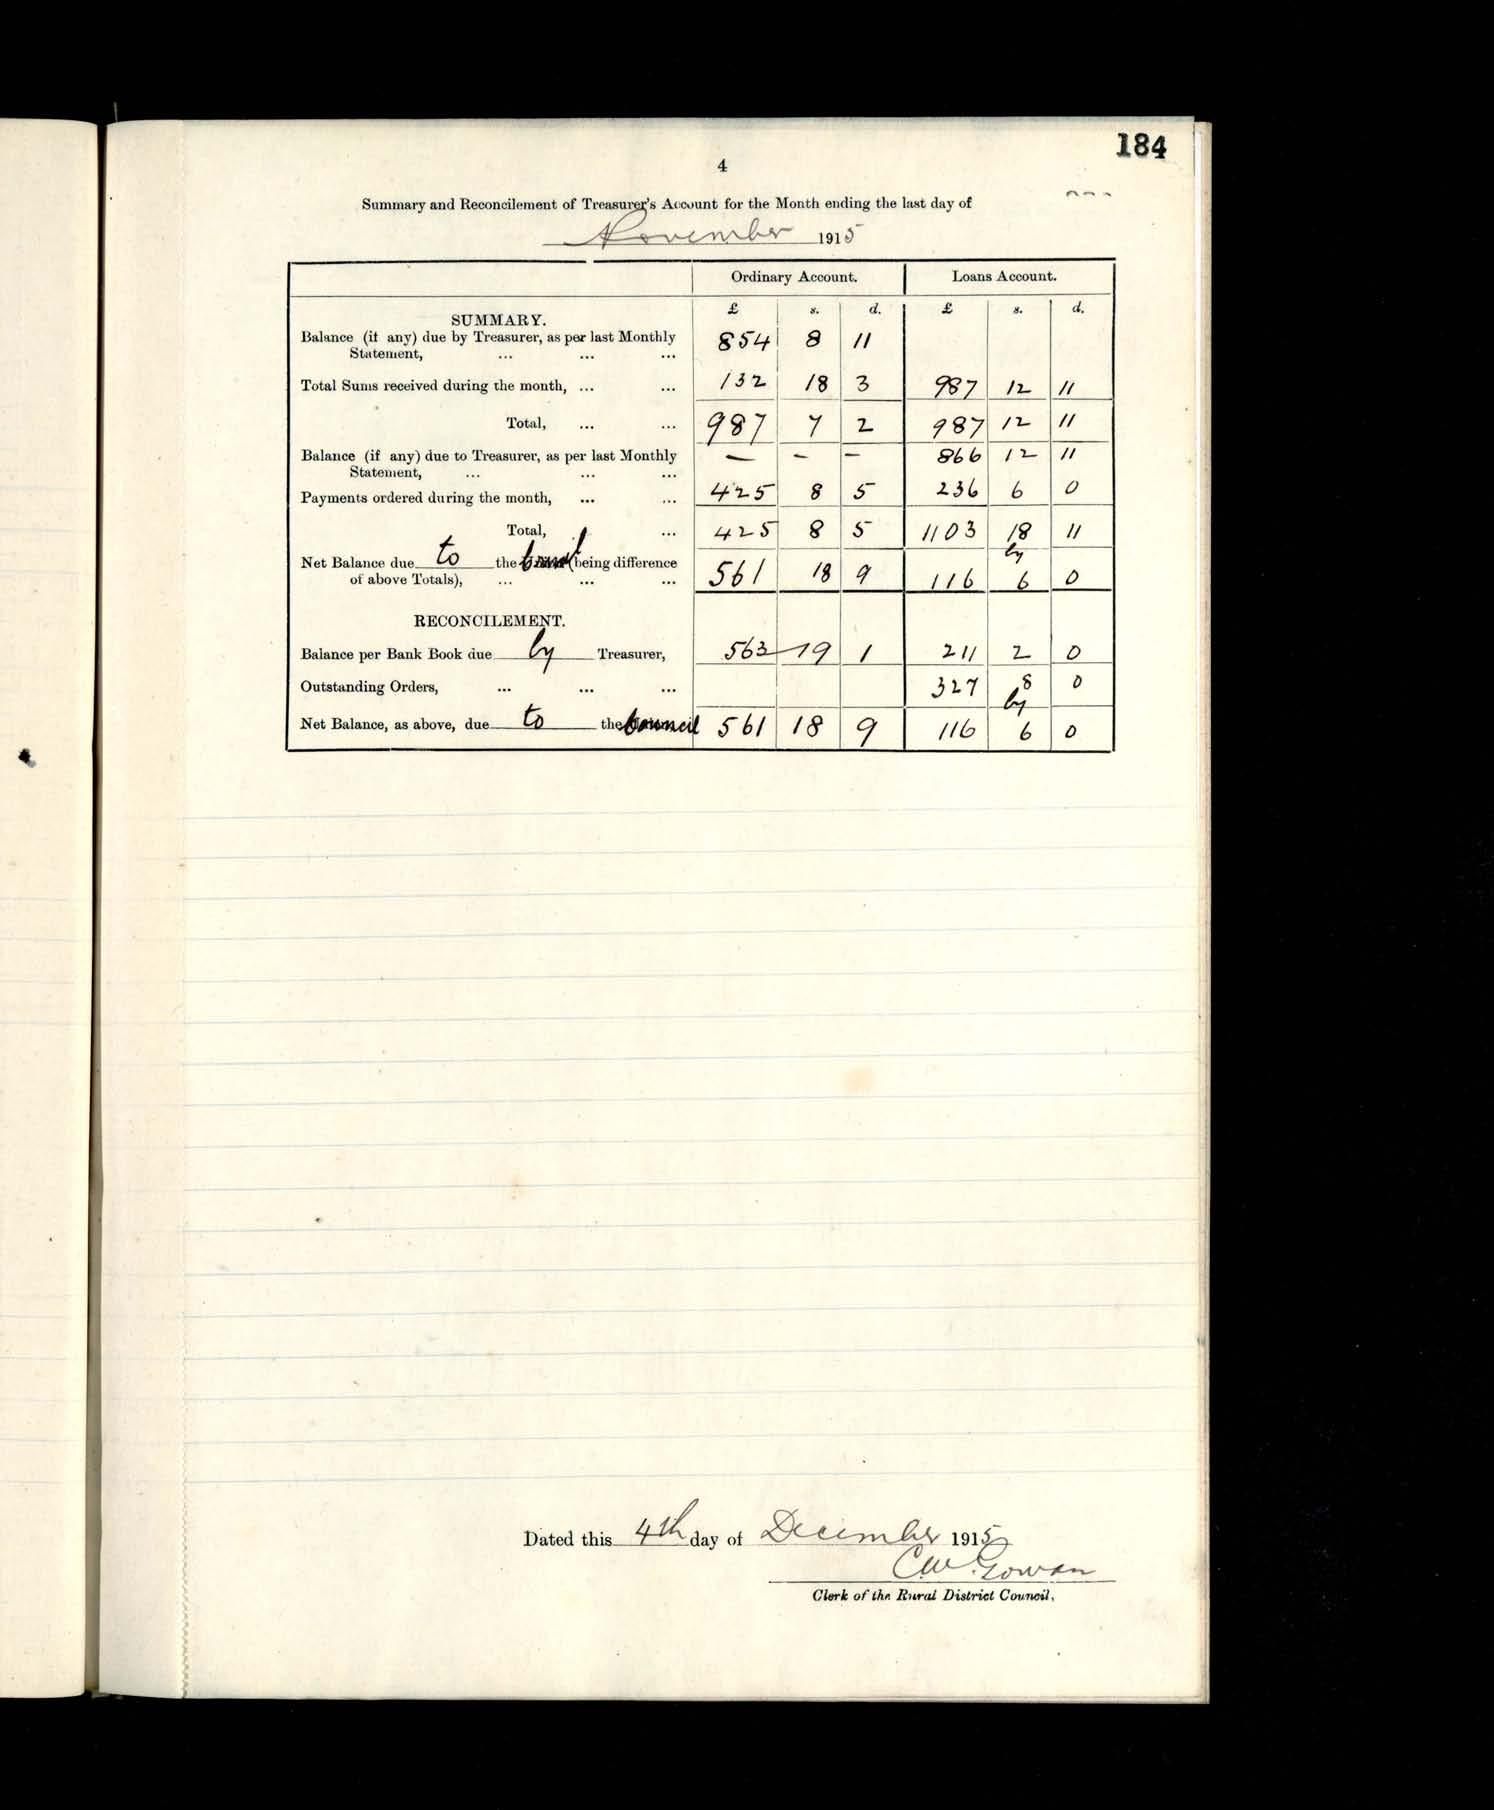 184
4
Summary and Reconcilement of Treasurer's Account for the Month ending the last day of
November 1915
Ordinary Account. Loans Account.
£ s. d. £ s. d.
SUMMARY.
Balance (if any) due by Treasurer, as per last Monthly 854 8 11
Statement, ... ... ...
Total Sums received during the month, ... ... 132 18 3 987 12 11
Total, ... ... 987 7 2 987 12 11
Balance (if any) due to Treasurer, as per last Monthly — — — 866 12 11
Statement, ... ... ...
Payments ordered during the month, ... ... 425 8 5 236 6 0
Total, ... 425 8 5 1103 18 11
by
Net Balance due to the (being difference
of above Totals), ... ... ... 561 18 9 116 6 0
RECONCILEMENT.
Balance per Bank Book due by Treasurer, 563 19 1 211 2 0
Outstanding Orders, ... ... ... 327 8 0
by
Net Balance, as above, due to the Council 561 18 9 116 6 0
Dated this 4th day of December 1915
C.W. Gowan
Clerk of the Rural District Council.